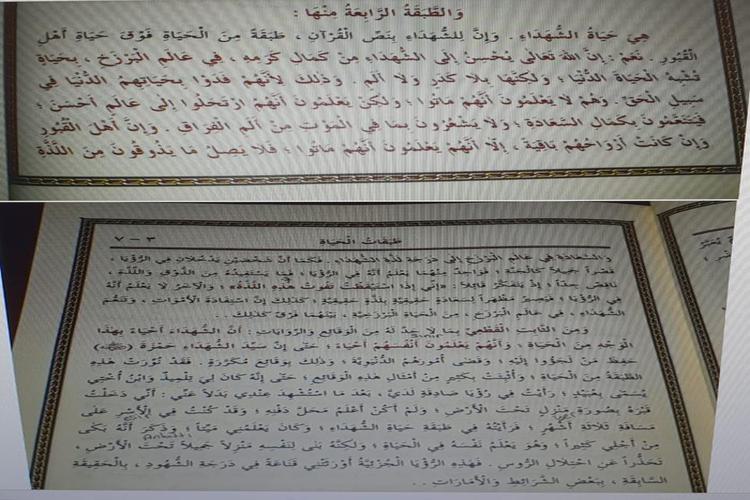 وَالطَّبَقَةُ الرَّابِعَةُ مِنْهَا :
هِيَ حَيَاةُ الشُّهَدَاءِ . وَإِنَّ لِلشُّهَدَاءِ بِنَصِّ الْقُرْآنِ ، طَبَقَةً مِنَ الْحَيَاةِ فَوْقَ حَيَاةِ أَهْلِ
الْقُبُورِ . نَعَمْ : إِنَّ اللهَ تَعَالَى يُحْسِنُ إِلَى الشُّهَدَاءِ مِنْ كَمَالِ كَرَمِهِ ، فِي عَالَمِ الْبَرْزَخِ ، بِحَيَاةٍ
تُشْبِهُ الْحَيَاةَ الدُّنْيَا ؛ وَلَكِنَّهَا بِلَا كَدَرٍ وَلَا أَلَمٍ . وَذَلِكَ لِأَنَّهُمْ فَدَوْا بِحَيَاتِهِمُ الدُّنْيَا فِي
سَبِيلِ الْحَقِّ . وَهُمْ لَا يَعْلَمُونَ أَنَّهُمْ مَاتُوا ؛ وَلَكِنْ يَعْلَمُونَ أَنَّهُمُ ارْتَحَلُوا إِلَى عَالَمٍ أَحْسَنَ ؛
فَيَتَنَعَّمُونَ بِكَمَالِ السَّعَادَةِ ؛ وَلَا يَشْعُرُونَ بِمَا فِي الْمَوْتِ مِنْ أَلَمِ الْفِرَاقِ . وَإِنَّ أَهْلَ الْقُبُورِ
وَإِنْ كَانَتْ أَرْوَاحُهُمْ بَاقِيَةً ، إِلَّا أَنَّهُمْ يَعْلَمُونَ أَنَّهُمْ مَاتُوا ؛ فَلَا يَصِلُ مَا يَذُوقُونَ مِنَ اللَّذَّةِ
٣ – ٧ طَبَقَاتُ الْحَيَاةِ
وَالسَّعَادَةِ فِي عَالَمِ الْبَرْزَخِ إِلَى دَرَجَةِ لَذَّةِ الشُّهَدَاءِ . فَكَمَا أَنَّ شَخْصَيْنِ يَدْخُلَانِ فِي الرُّؤْيَا ،
قَصْرًا جَمِيلًا كَالْجَنَّةِ ؛ فَوَاحِدٌ مِنْهُمَا يَعْلَمُ أَنَّهُ فِي الرُّؤْيَا ؛ فَمَا يَسْتَفِيدُهُ مِنَ الذَّوْقِ وَاللَّذَّةِ ،
نَاقِصٌ جِدًّا ؛ إِذْ يَتَفَكَّرُ قَائِلًا : «إِنِّي إِذَا اسْتَيْقَظْتُ تَفُوتُ هَذِهِ اللَّذَّةُ» ؛ وَالْآخَرُ لَا يَعْلَمُ أَنَّهُ
فِي الرُّؤْيَا ، فَيَصِيرُ مَظْهَرًا لِسَعَادَةٍ حَقِيقِيَّةٍ بِلَذَّةٍ حَقِيقِيَّةٍ ؛ كَذَلِكَ إِنَّ اسْتِفَادَةَ الْأَمْوَاتِ ، وَتَنَعُّمَ
الشُّهَدَاءِ ، فِي عَالَمِ الْبَرْزَخِ ، مِنَ الْحَيَاةِ الْبَرْزَخِيَّةِ ، بَيْنَهُمَا فَرْقٌ كَذَلِكَ..
وَمِنَ الثَّابِتِ الْقَطْعِيِّ بِمَا لَا حَدَّ لَهُ مِنَ الْوَقَائِعِ وَالرِّوَايَاتِ : أَنَّ الشُّهَدَاءَ أَحْيَاءٌ بِهَذَا
الْوَجْهِ مِنَ الْحَيَاةِ ، وَأَنَّهُمْ يَعْلَمُونَ أَنْفُسَهُمْ أَحْيَاءً ؛ حَتَّى إِنَّ سَيِّدَ الشُّهَدَاءِ حَمْزَةَ
حَفِظَ مَنْ لَجَؤُوا إِلَيْهِ ؛ وَقَضَى أُمُورَهُمُ الدُّنْيَوِيَّةَ ؛ وَذَلِكَ بِوَقَائِعَ مُكَرَّرَةٍ . فَقَدْ نُوِّرَتْ هَذِهِ
الطَّبَقَةُ مِنَ الْحَيَاةِ ؛ وَأُثْبِتَتْ بِكَثِيرٍ مِنْ أَمْثَالِ هَذِهِ الْوَقَائِعِ ؛ حَتَّى إِنَّهُ كَانَ لِي تِلْمِيذٌ وَابْنُ أُخْتِي
يُسَمَّى بِعُبَيْدٍ ؛ رَأَيْتُ فِي رُؤْيَا صَادِقَةٍ لَدَيَّ ، بَعْدَ مَا اسْتُشْهِدَ عِنْدِي بَدَلًا عَنِّي : أَنِّي دَخَلْتُ
قَبْرَهُ بِصُورَةِ مَنْزِلٍ تَحْتَ الْأَرْضِ ؛ وَلَمْ أَكُنْ أَعْلَمُ مَحَلَّ دَفْنِهِ ؛ وَقَدْ كُنْتُ فِي الْأَسْرِ عَلَى
مَسَافَةِ ثَلَاثَةِ أَشْهُرٍ ؛ فَرَأَيْتُهُ فِي طَبَقَةِ حَيَاةِ الشُّهَدَاءِ ؛ وَكَانَ يَعْلَمُنِي مَيِّتًا ؛ وَذَكَرَ أَنَّهُ بَكَى
مِنْ أَجْلِي كَثِيرًا ؛ وَهُوَ يَعْلَمُ نَفْسَهُ فِي الْحَيَاةِ ؛ وَلَكِنَّهُ بَنَى لِنَفْسِهِ مَنْزِلًا جَمِيلًا تَحْتَ الْأَرْضِ ،
تَحَذُّرًا عَنِ احْتِلَالِ الرُّوسِ . فَهَذِهِ الرُّؤْيَا الْجُزْئِيَّةُ أَوْرَثَتْنِي قَنَاعَةً فِي دَرَجَةِ الشُّهُودِ ، بِالْحَقِيقَةِ
السَّابِقَةِ ، بِبَعْضِ الشَّرَائِطِ وَالْأَمَارَاتِ..